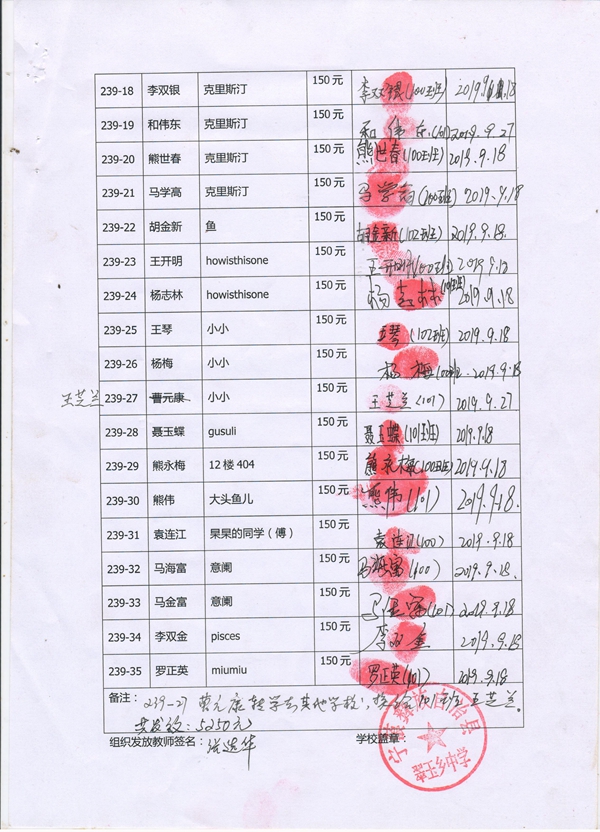 239-18 李双银 克里斯汀 150元 李双银(100班) 2019.9.18
239-19 和伟东 克里斯汀 150元 和伟东(101) 2019.9.27
239-20 熊世春 克里斯汀 150元 熊世春(100班) 2019.9.18
239-21 马学高 克里斯汀 150元 马学高(100班) 2019.9.18
239-22 胡金新 鱼 150元 胡金新(102班) 2019.9.18.
239-23 王开明 howisthisone 150元 王开明(100班) 2019.9.18
239-24 杨志林 howisthisone 150元 杨志林(101班) 2019.9.18
239-25 王琴 小小 150元 王琴(102班) 2019.9.18
239-26 杨梅 小小 150元 杨梅(100班. 2019.9.18
王芝兰 239-27 曹元康 小小 150元 王芝兰(101) 2019.9.27
239-28 聂玉蝶 gusuli 150元 聂玉蝶(101班) 2019.9.18
239-29 熊永梅 12楼404 150元 熊永梅(100班) 2019.9.18
239-30 熊伟 大头鱼儿 150元 熊伟(101) 2019.9.18.
239-31 袁连江 杲杲的同学(傅) 150元 袁连江(100) 2019.9.18
239-32 马海富 意阑 150元 马海富(100) 2019.9.18.
239-33 马金富 意阑 150元 马金富(101) 2019.9.18
239-34 李双金 pisces 150元 李双金 2019.9.18
239-35 罗正英 miumiu 150元 罗正英(101) 2019.9.18
备注: 239-27 曹元康转学去其他学校, 101班王芝兰.
共发放:5250元
组织发放教师签名: 学校盖章:
宁蒗彝族自治县
翠玉乡中学